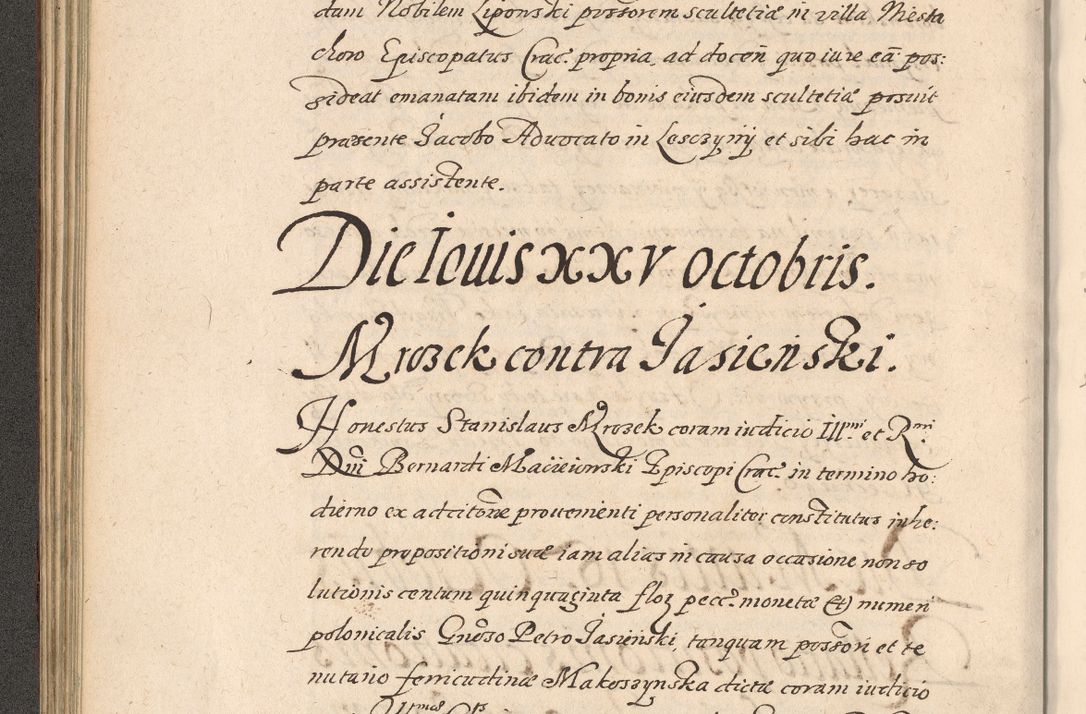 dam Nobilem Liponski possorem scultetiæ in villa Miesta
choro Episcopatus Crac: propria, ad docen̄ quo iure eā pos:
sideat emanatam ibidem in bonis eiusdem scultetiæ posuit
præsente Jacobo Aduocato in Lesczyny et sibi hac in
parte assistente.
Die Iouis XXV octobris.
Mrozek contra Jasieński.
Honestus Stanislaus Mrozek coram iudicio Illmi et Rmi
Dni Bernardi Macieiowski Episcopi Crac: in termino ho:
dierno ex adcitōne prouenienti personaliter constitutus inhe:
rendo propositioni suæ iam alias in causa occasione non so
lutionis centum quinquaginta floz pecc: monetæ et numeri
polonicalis Gnoso Petro Jasieński, tanquam possori et te
nutario ferricudinæ Makoszynska dictæ coram iudicio